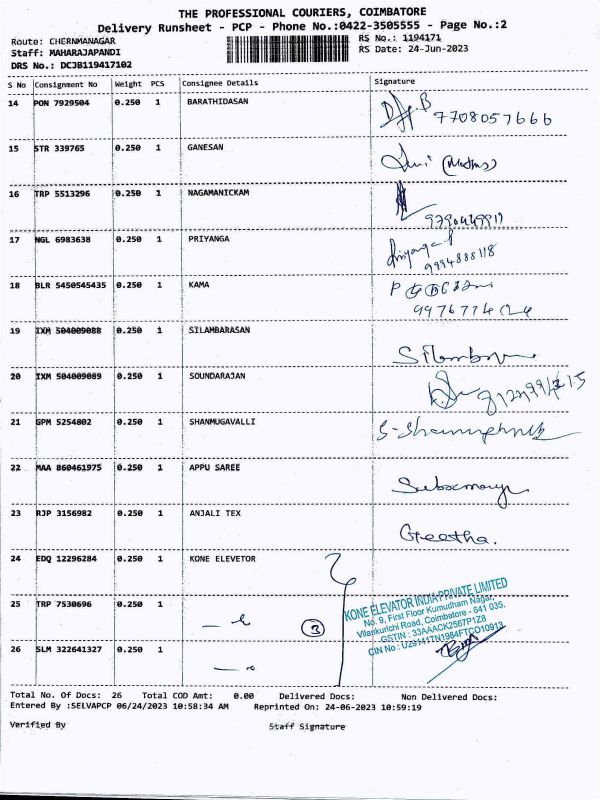 THE PROFESSIONAL COURIERS, COIMBATORE
Delivery Runsheet - PCP - Phone No.:0422-3505555 - Page No.:2
Route: CHERNMANAGAR
RS No.: 1194171
Staff: MAHARAJAPANDI
RS Date: 24-Jun-2023
DRS No.: DCJB119417102
S No Consignment No Weight PCS Consignee Details Signature
14 PON 7929504 0.250 1 BARATHIDASAN
7708057666
15 STR 339765 0.250 1 GANESAN
16 TRP 5513296 0.250 1 NAGAMANICKAM
17 NGL 6983638 0.250 1 PRIYANGA
Priyanga.P
9994888118
18 BLR 5450545435 0.250 1 KAMA
19 IXM 504009088 0.250 1 SILAMBARASAN
20 IXM 504009089 0.250 1 SOUNDARAJAN
21 GPM 5254802 0.250 1 SHANMUGAVALLI
22 MAA 860461975 0.250 1 APPU SAREE
23 RJP 3156982 0.250 1 ANJALI TEX
Geetha.
24 EDQ 12296284 0.250 1 KONE ELEVETOR
25 TRP 7530696 0.250 1
26 SLM 322641327 0.250 1
3
KONE ELEVATOR INDIA PRIVATE LIMITED
No. 9, First Floor Kumudham Nagar,
Vilankurichi Road, Coimbatore - 641 035.
GSTIN : 33AAACK2567P1Z8
CIN No : U29141TN1984FTC010913
Total No. Of Docs: 26 Total COD Amt: 0.00 Delivered Docs: Non Delivered Docs:
Entered By :SELVAPCP 06/24/2023 10:58:34 AM Reprinted On: 24-06-2023 10:59:19
Verified By Staff Signature